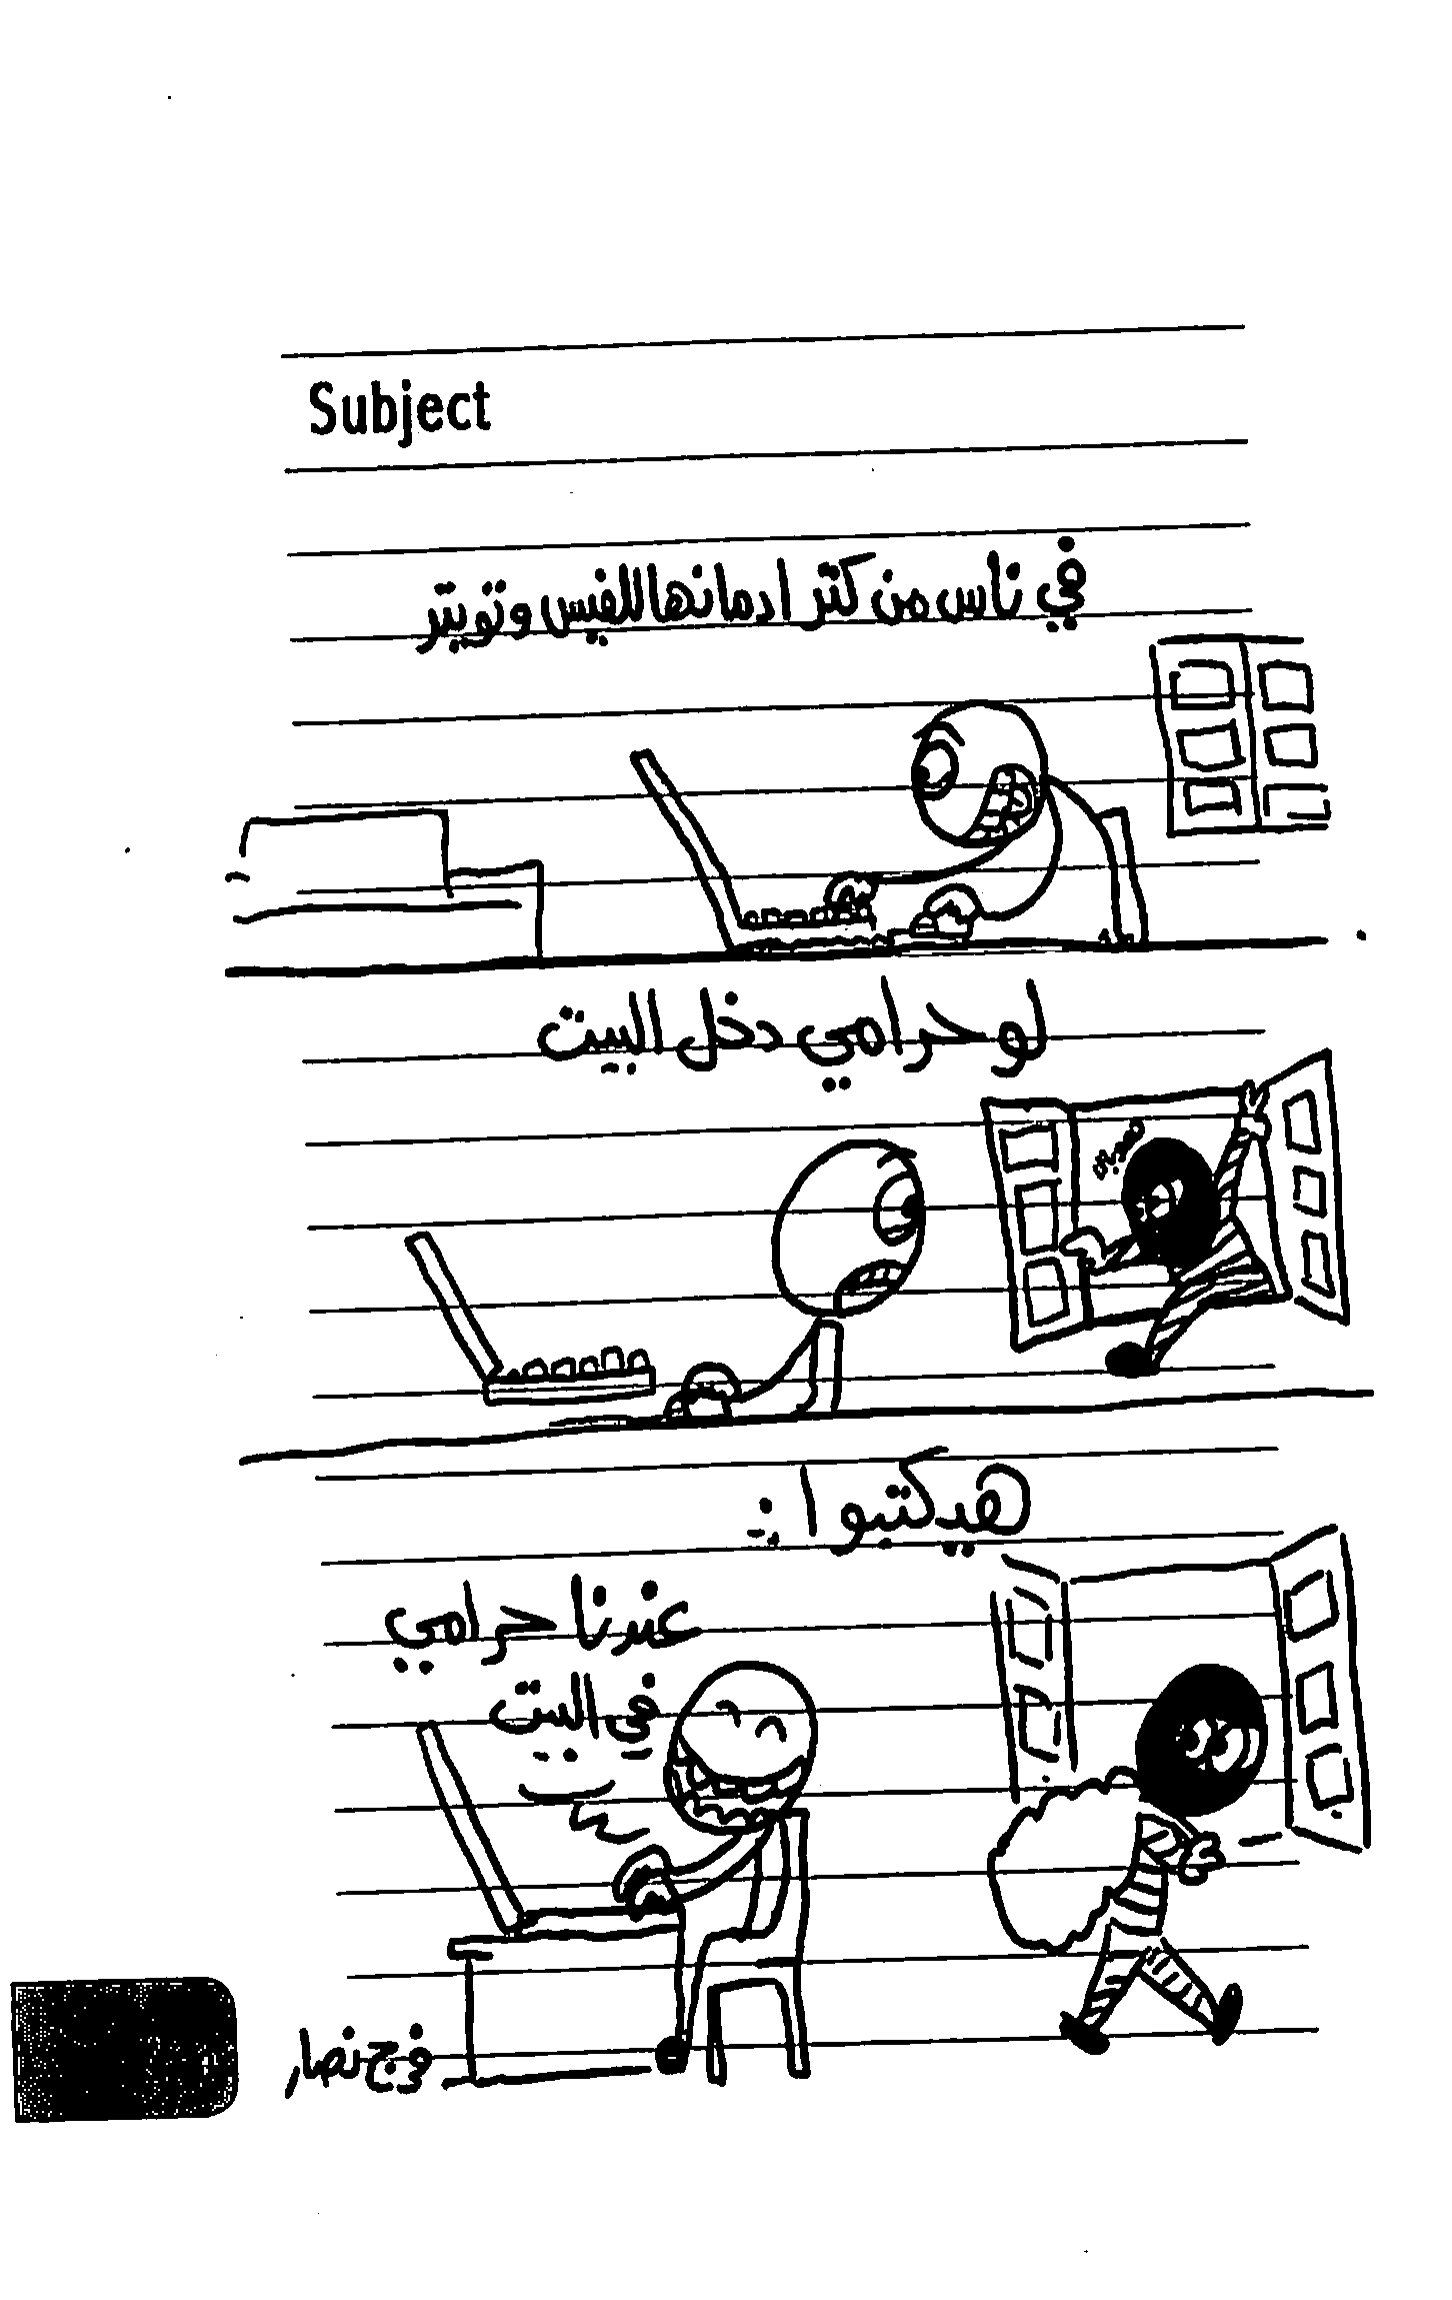 Subject
في ناس من كتر ادمانها للفيس وتويتر
لو حرامي دخل البيت
هيكتبوا :
عندنا حرامي
في البيت
فرج نصار